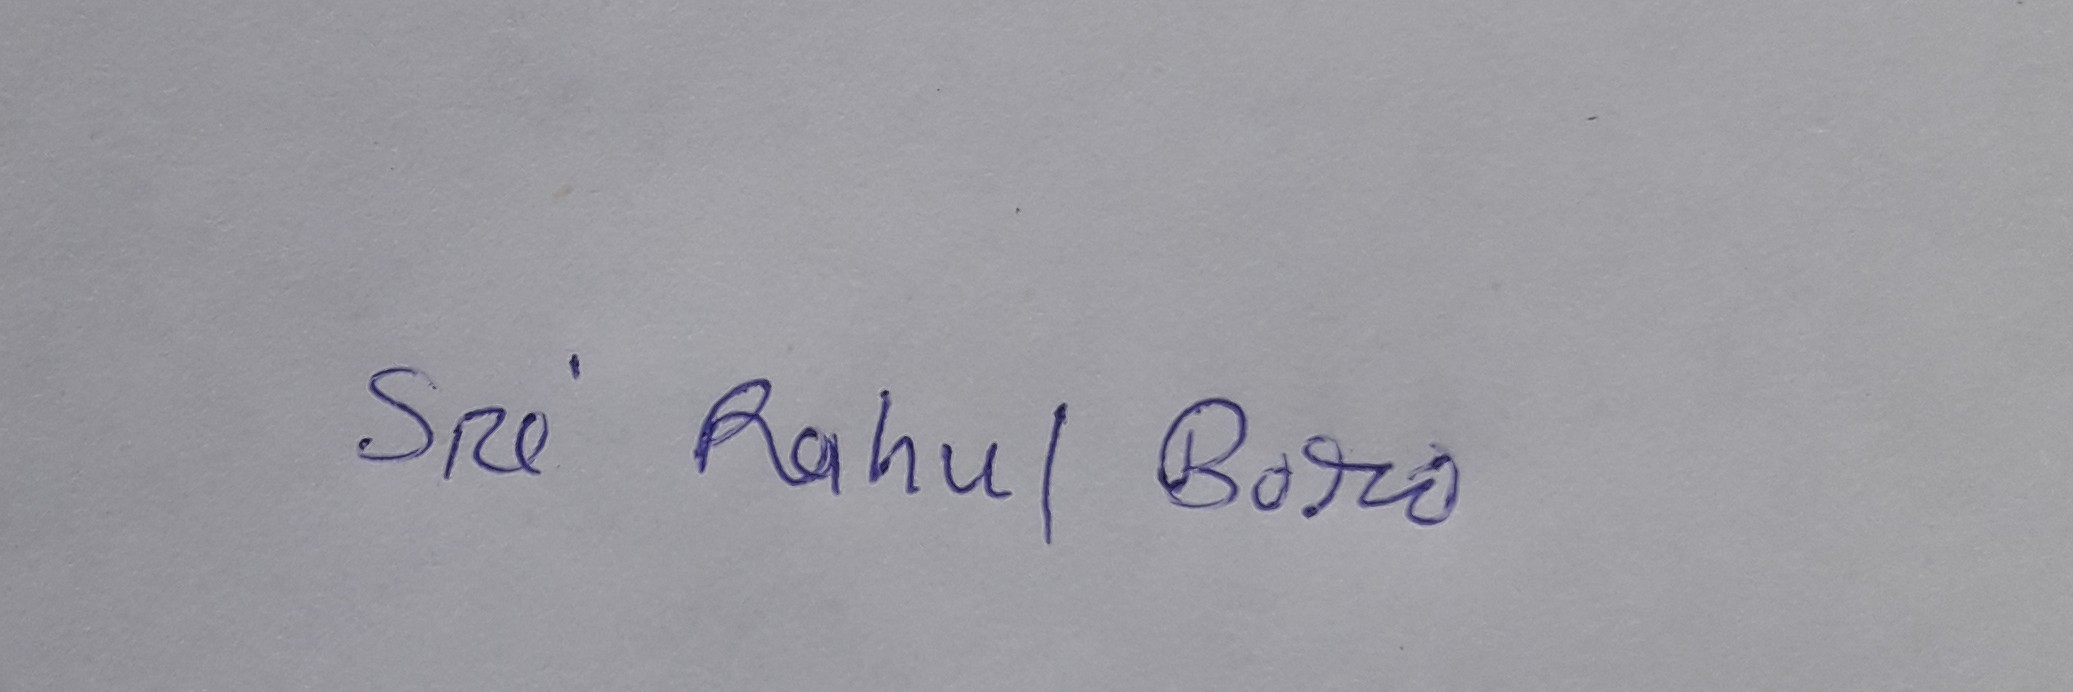 Sri Rahul Boro